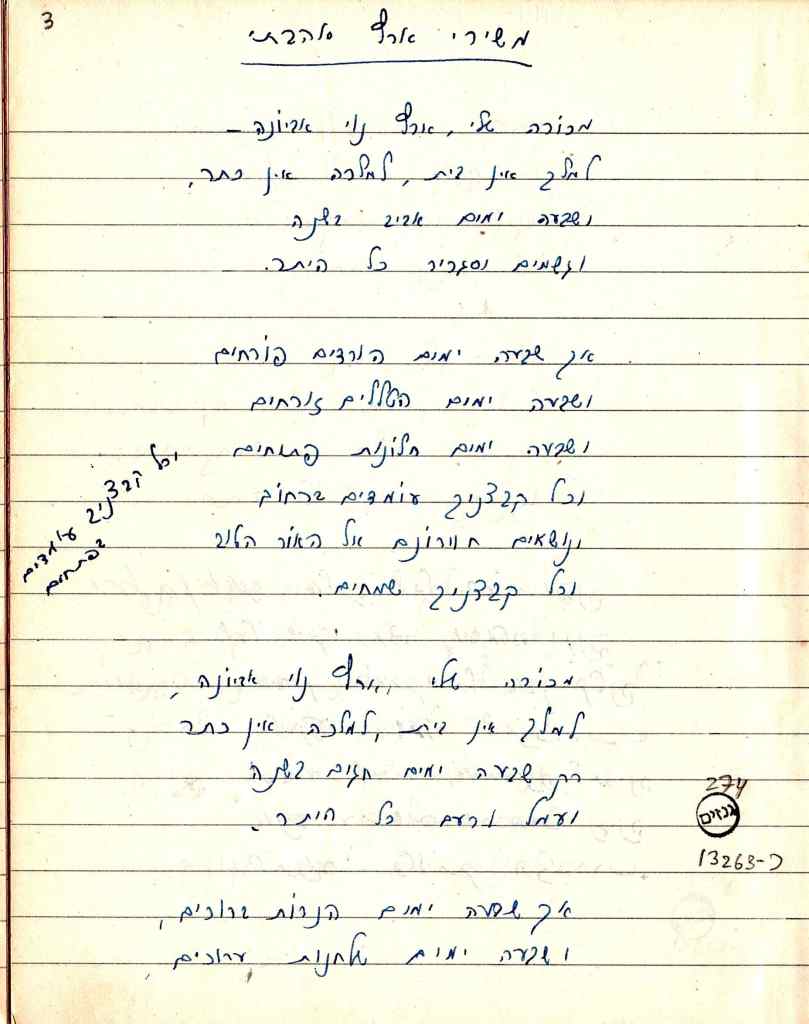 3
משירי ארץ אהבתי
מכורה שלי, ארץ נוי אביונה –
למלך אין בית, למלכה אין כתר,
ושבעה ימים אביב בשנה
וגשמים וסגריר כל היתר.
אך שבעה ימים הורדים פורחים
ושבעה ימים הטללים זורחים
ושבעה ימים חלונות פתוחים
וכל קבצניך עומדים ברחוב
ונושאים חוורונם אל האור הטוב
וכל קבצניך שמחים.
וכל קבצניך עומדים
בפתחים
מכורה שלי, ארץ נוי אביונה,
למלך אין בית, למלכה אין כתר
רק שבעה ימים חגים בשנה
ועמל ורעב כל היתר.
274
גנזים
13263-כ
אך שבעה ימים הנרות ברוכים,
ושבעה ימים שלחנות ערוכים,